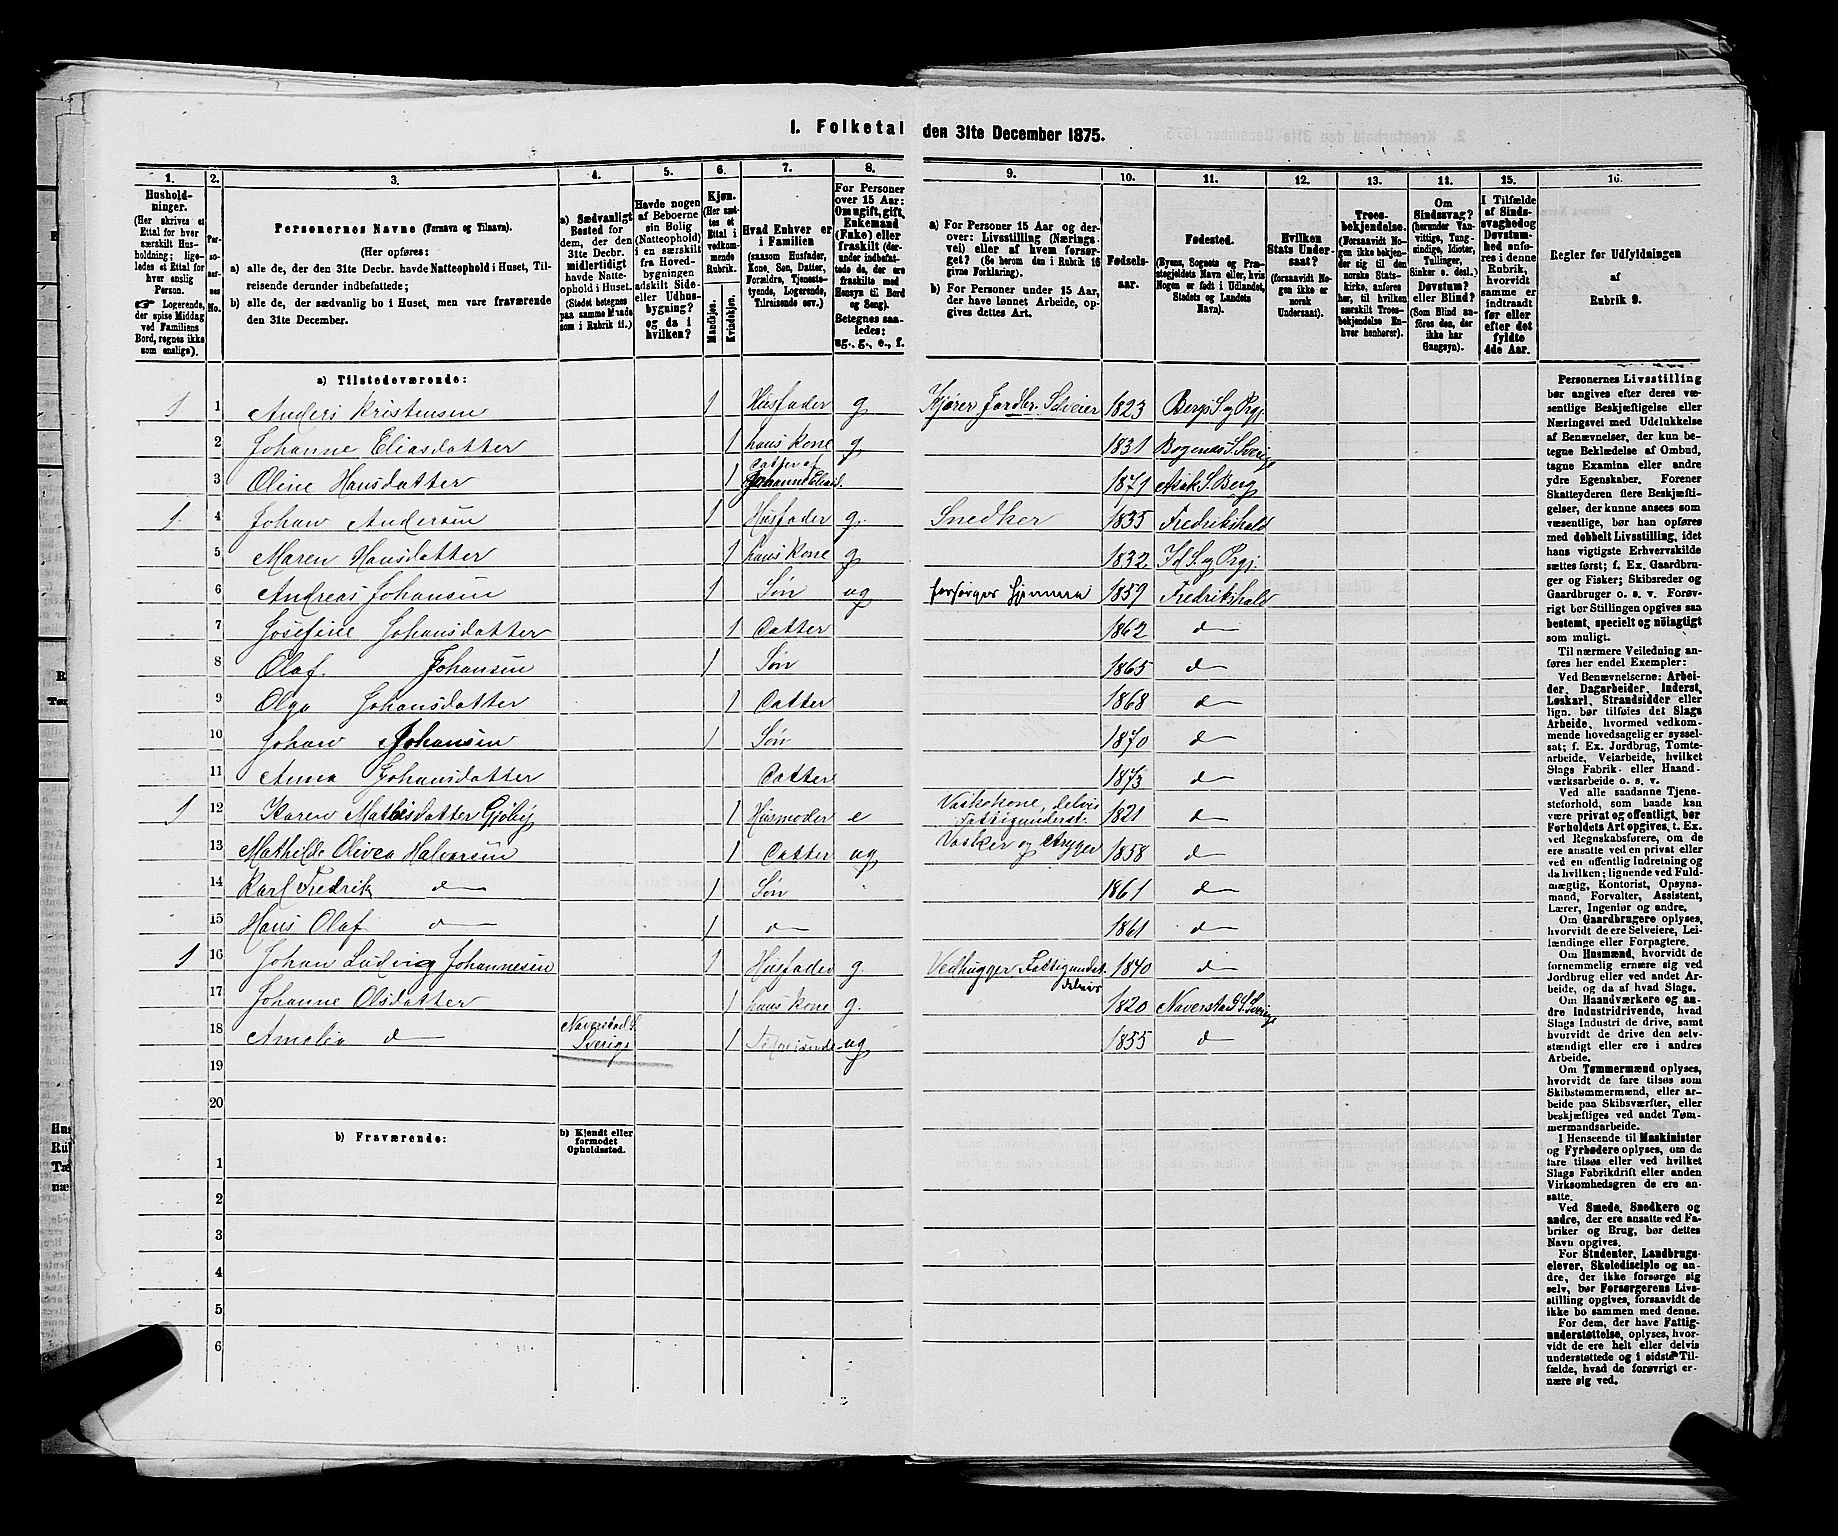 1. Folketal den 31te December 1875.
1. 2. 3. 4. 5. 6. 7. 8. 9. 10. 11. 12. 13. 14. 15. 16.
Husholdninger. (Her skrives et Ettal for hver særskilt Husholdning; ligeledes et Ettal for hver enslig Person. Logerende, der spise Middag ved Familiens Bord, regnes ikke som enslige).
Personernes No.
Personernes Navne (Fornavn og Tilnavn).
(Her opføres:
a) alle de, der den 31te Decbr. havde Natteophold i Huset, Tilreisende derunder indbefattede;
b) alle de, der sædvanlig bo i Huset, men vare fraværende den 31te December.
a) Sædvanligt Bosted for dem, der den 31te Decbr. midlertidigt havde Natteophold i Huset. (Stedet betegnes paa samme Maade som i Rubrik 11.)
Havde nogen af Beboerne sin Bolig (Natteophold) i en særskilt fra Hovedbygningen adskilt Side- eller Udhusbygning? og da i hvilken?
Kjøn. (Her sættes et Ettal i vedkommende Rubrik. Mandkjøn. Kvindekjøn.
Hvad Enhver er i Familien (saasom Husfader, Kone, Søn, Datter, Forældre, Tjenestetyende, Logerende, Tilreisende osv.)
For Personer over 15 Aar: Om ugift, gift, Enkemand (Enke) eller fraskilt (derunder indbefattede de, der ere fraskilte med Hensyn til Bord og Seng). Betegnes saaledes: ug., g., e., f.
a) For Personer 15 Aar og derover: Livsstilling (Næringsvei) eller af hvem forsørget? (Se herom den i Rubrik 16 givne Forklaring).
b) For Personer under 15 Aar, der have lønnet Arbeide, opgives dettes Art.
Fødselsaar.
Fødested. (Byens, Sognets og Præstegjeldets Navn eller, hvis Nogen er født i Udlandet, Stedets og Landets Navn).
Hvilken Stats Undersaat? (forsaavidt Nogen ikke er norsk Undersaat).
Troesbekjendelse. (Forsaavidt Nogen ikke bekjender sig til den norske Statskirke, anføres her, til hvilken særskilt Troesbekjendelse Enhver henhører).
Om Sindssvag? (herunder Vanvittige, Tungsindige, Idioter, Tullinger, Sinker o. desl.) Døvstum? eller Blind? (Som Blind anføres den, der ikke har Gangsyn).
I Tilfælde af Sindssvaghed og Døvstumhed anføres i denne Rubrik, hvorvidt samme er indtraadt før eller efter det fyldte 4de Aar.
Regler for Udfyldningen af Rubrik 9.
a) Tilstedeværende:
1 1 Anders Kristensen 1 Husfader g Kjører Jordbr. Selveier 1823 Bergs S. og Prgj.
2 Johanne Eliasdatter 1 hans Kone g 1831 S. Sverige
3 Oline Hansdatter 1 Datter af Johanne Elias. 1871 Asak S. Berg
1 4 Johan Andersen 1 Husfader g. Snedker 1835 Fredrikshald
5 Maren Hansdatter 1 hans Kone g 1832 Id S. og Prgj.
6 Andreas Johansen 1 Søn ug forsørges hjemme 1859 Fredrikshald
7 Josefine Johansdatter 1 Datter 1862 d
8 Olaf Johansen 1 Søn 1865 d
9 Olga Johansdatter 1 Datter 1868 d
10 Johan Johansen 1 Søn 1870 d
11 Anna Johansdatter Datter 1873 d
1 12 Karen Mathisdatter Gjølby 1 Husmoder e Vaskekone, delvis Fattigunderst. 1821 d
13 Mathilde Olivea Halvorsen 1 Datter ug Vasker og stryger 1858 d
14 Karl Fredrik d 1 Søn 1861 d
15 Hans Olaf d 1 d 1861 d
1 16 Johan Ludvig Johannesen 1 Husfader g. Vedhugger Fattigunderst. delvis 1840 d
17 Johanne Olsdatter 1 hans Kone g. 1820 Naverstad S. Sverige
18 Amalia d Naverstad S. Sverige 1 Tilreisende ug 1855 d
19
20
b) Fraværende: b) Kjendt eller formodet Opholdssted.
1
2
3
4
5
6
Personernes Livsstilling
bør angives efter deres væ-
sentlige Beskjæftigelse eller
Næringsvei med Udelukkelse
af Benævnelser, der kun be-
tegne Beklædelse af Ombud,
tagne Examina eller andre
ydre Egenskaber. Forener
Skatteyderen flere Beskjæfti-
gelser, der kunne ansees som
væsentlige, bør han opføres
med dobbelt Livsstilling, idet
hans vigtigste Erhvervskilde
sættes først; f. Ex. Gaardbru-
ger og Fisker; Skibsreder og
Gaardbruger o. s. v. Forøv-
rigt bør Stillingen opgives saa
bestemt, specielt og nøiagtigt
som muligt.
Til nærmere Veiledning an-
føres her endel Exempler:
Ved Benævnelserne: Arbei-
der, Dagarbeider, Inderst,
Løskarl, Strandsidder eller
lign. bør tilføies det Slags
Arbeide, hvormed vedkom-
mende hovedsagelig er syssel-
sat; f. Ex. Jordbrug, Tomte-
arbeide, Veiarbeide, hvilket
Slags Fabrik- eller Haand-
værksarbeide o. s. v.
Ved alle saadanne Tjene-
steforhold, som baade kan
være privat og offentligt, bør
Forholdets Art opgives, t. Ex.
ved Regnskabsførere, om de
ere ansatte ved en privat eller
ved en offentlig Indretning og
da hvilken; lignende ved Fuld-
mægtig, Kontorist, Opsyns-
mand, Forvalter, Assistent,
Lærer, Ingeniør og andre.
Om Gaardbrugere oplyses,
hvorvidt de ere Selveiere, Lei-
lændinge eller Forpagtere.
Om Husmænd, hvorvidt de
fornemmelig ernære sig ved
Jordbrug eller ved andet Ar-
beide, og da af hvad Slags.
Om Haandværkere og an-
dre Industridrivende, hvad
Slags Industri de drive, samt
hvorvidt de drive den selv-
stændigt eller ere i andres
Arbeide.
Om Tømmermænd oplyses,
hvorvidt de fare tilsøs som
Skibstømmermænd, eller ar-
beide paa Skibsværfter, eller
beskjæftiges ved andet Tøm-
mermandsarbeide.
I Henseende til Maskinister
og Fyrbødere oplyses, om de
fare tilsøs eller ved hvilket
Slags Fabrikdrift eller anden
Virksomhedsgren de ere an-
satte.
Ved Smede, Snedkere og
andre, der ere ansatte ved Fa-
briker og Brug, bør dettes
Navn opgives.
For Studenter, Landbrugs-
elever, Skoledisciple og an-
dre, der ikke forsørge sig
selv, bør Forsørgerens Livs-
stilling opgives, forsaavidt de
ikke bo sammen med denne.
For dem, der have Fattig-
understøttelse, oplyses, hvor-
vidt de ere helt eller delvis
understøttede og i sidste Til-
fælde, hvad de forøvrigt er-
nære sig ved.